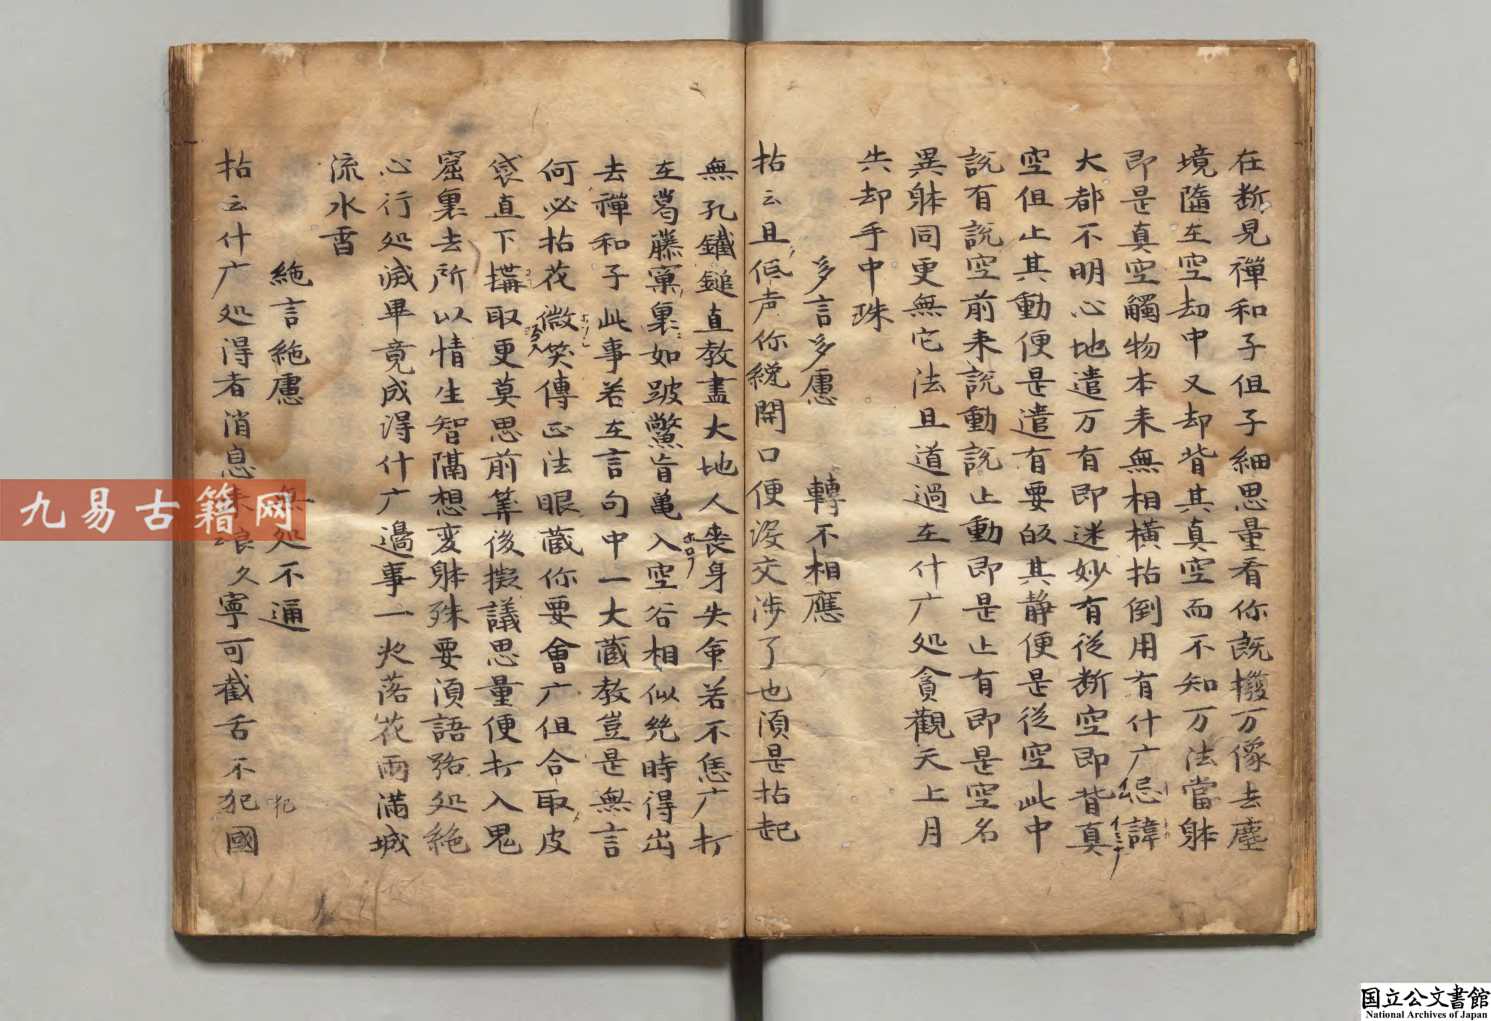 在断見禪和子伹子細思量看你既撥万像去塵
境隨在空却中又却背其真空而不知万法當躰
即是真空觸物本来無相横拈倒用有什广忌諱
大都不明心地遣万有即迷妙有従断空即背真
空伹止其動便是遣有要皈其静便是従空此中
説有説空前来説動説止動即是止有即是空名
異躰同更無它法且道過在什广処貪觀天上月
失却手中珠
多言多慮　轉不相應
拈云且低声你纔開口便没交渉了也湏是拈起
無孔鐵鎚直教盡大地人喪身失命若不恁广打
在葛藤窠裏如跛鱉盲亀入空谷相似幾時得出
去禪和子此事若在言句中一大蔵教豈是無言
何必拈花微笑傳正法眼蔵你要會广伹合取皮
袋直下搆取更莫思前筭後擬議思量便打入鬼
窟裏去所以情生智隔想変躰殊要湏語路処絶
心行処滅畢竟成得什广邉事一火落花雨満城
流水香
絶言絶慮　処不通
拈云什广処得者消息来 久寧可截舌不犯國
犯
九易古籍网
国立公文書館
National Archives of Japan